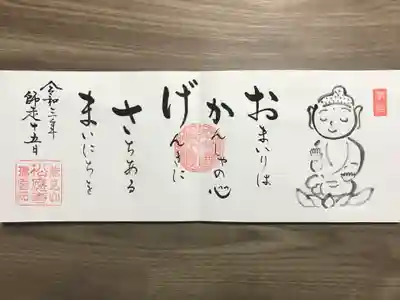 おまいりは
かんしゃの心
げんきに
さちある
まいにちを
令和二年
師走十五日
松應寺